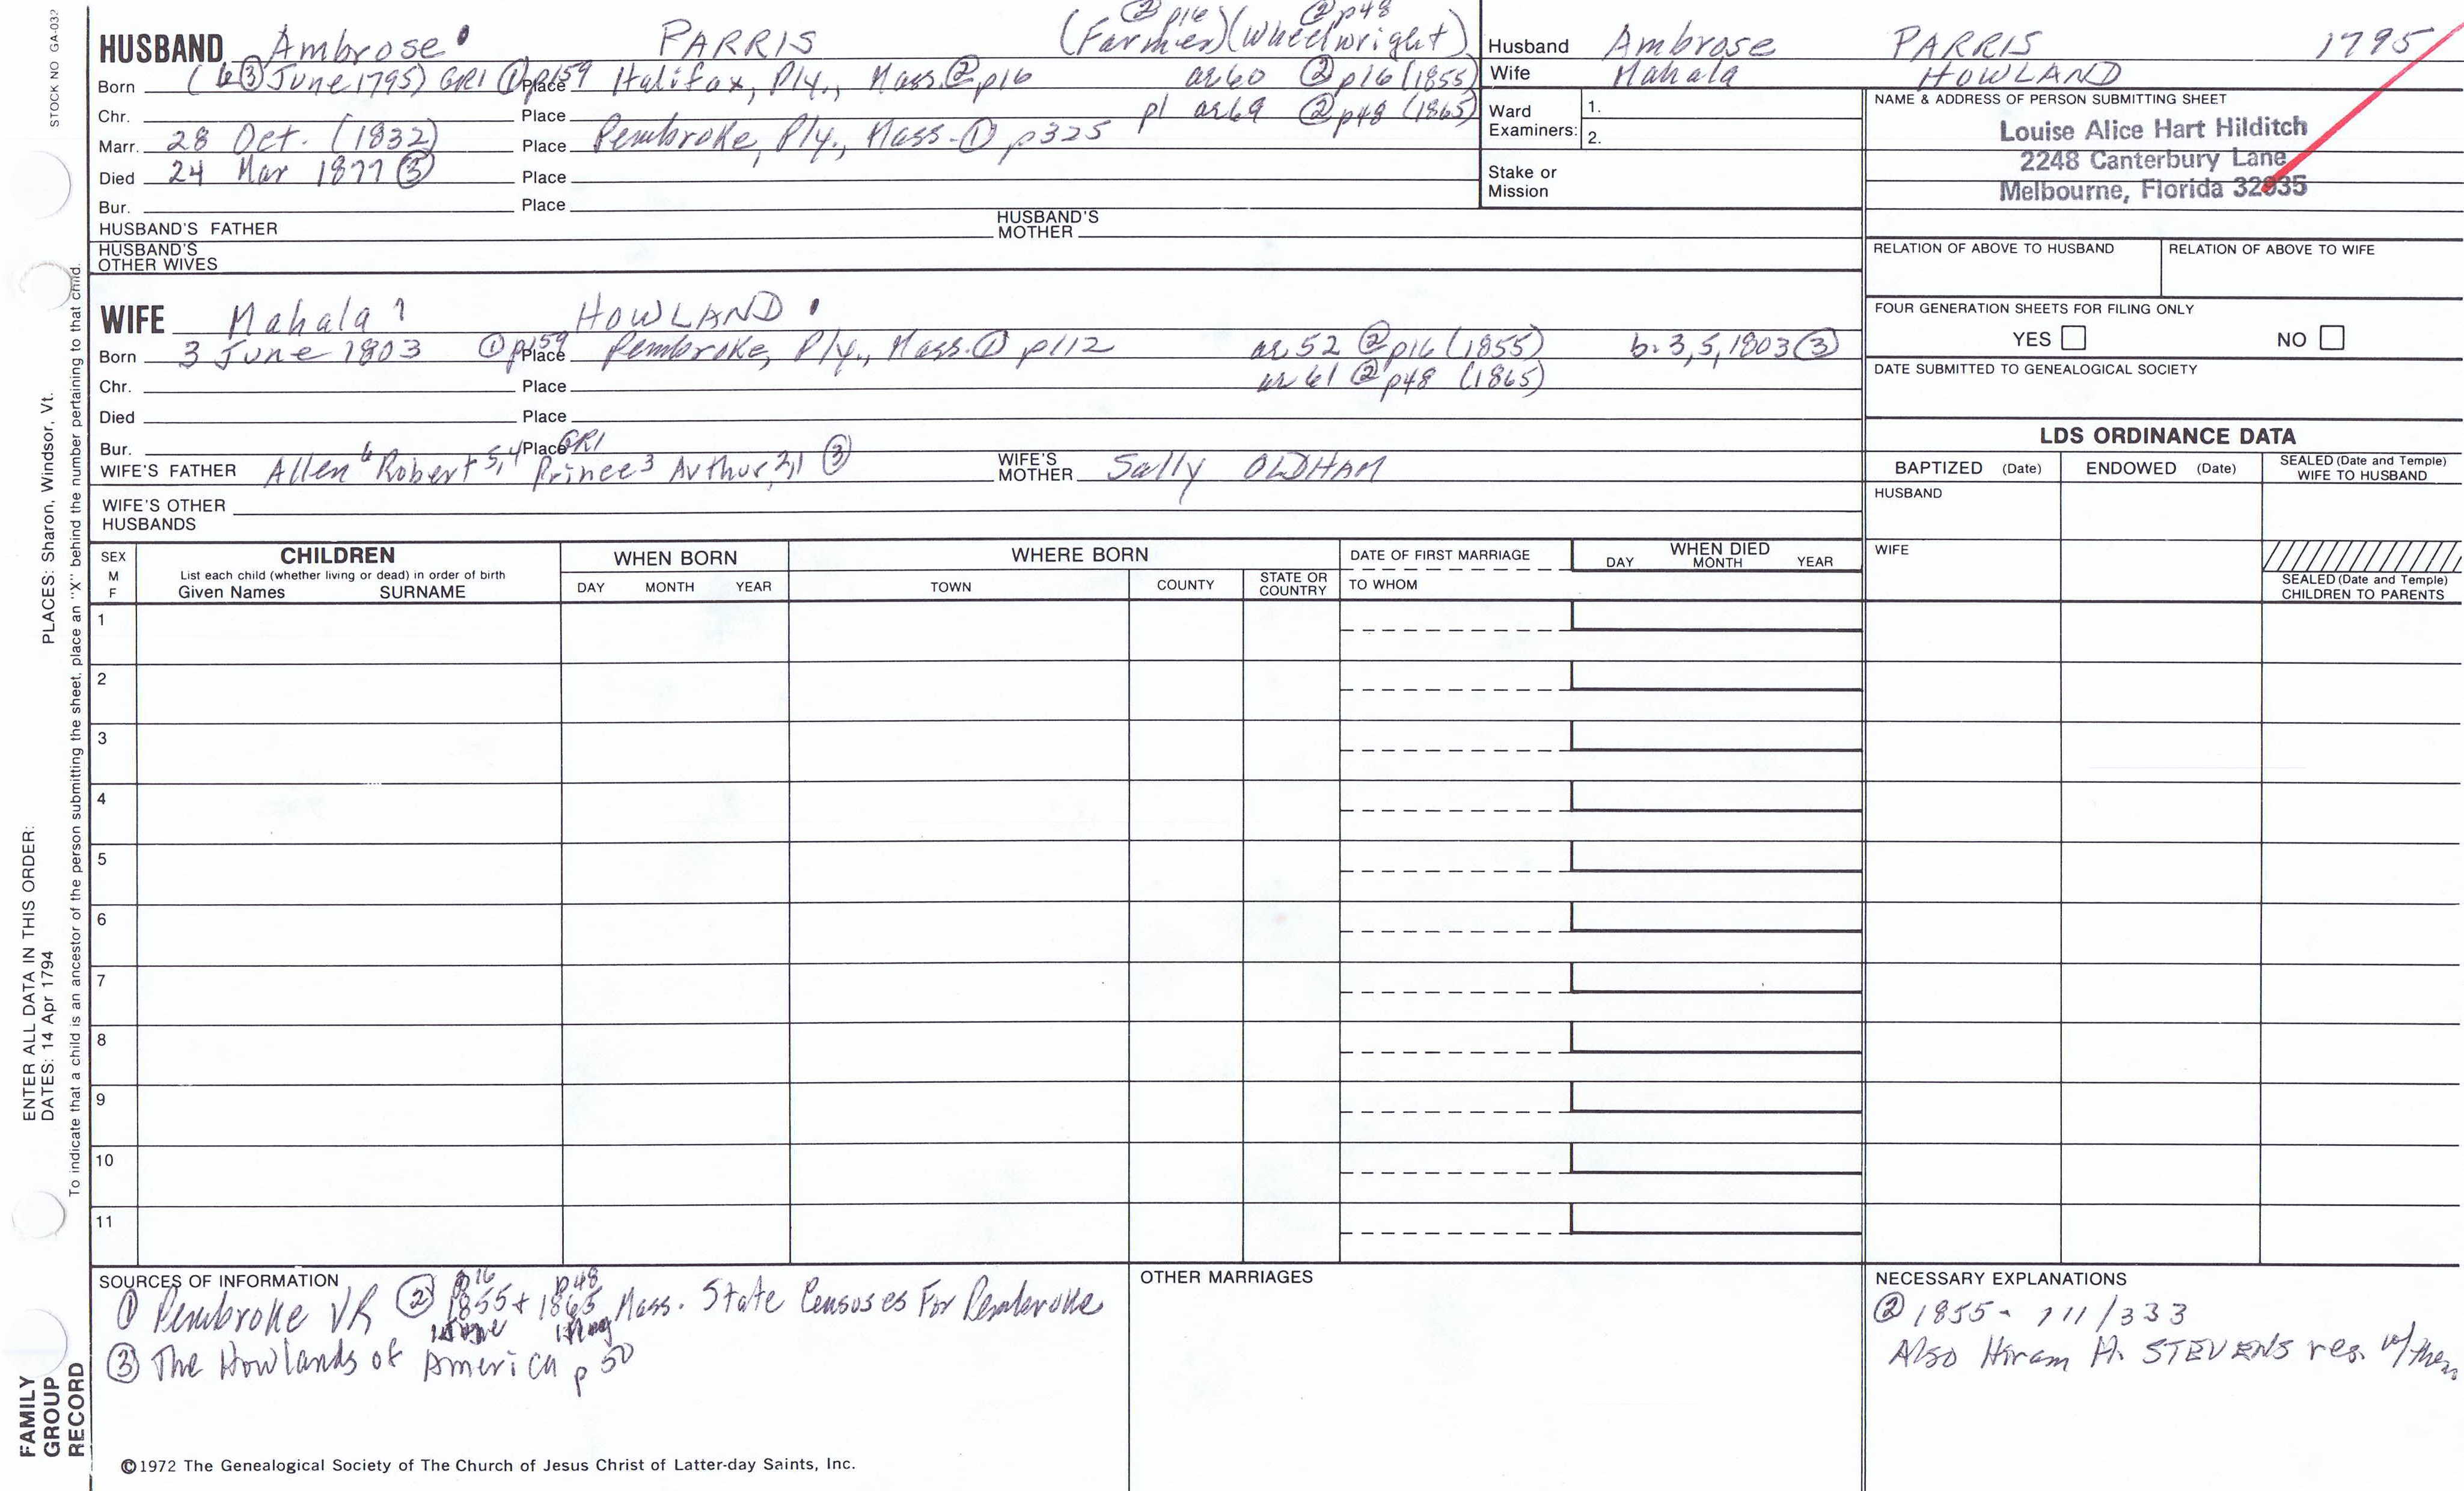 STOCK NO GA-032
② p16 ② p48
HUSBAND Ambrose PARRIS (Farmer) (wheelwright)
Born (6③ June 1795) GR1 ① p159 Place Halifax, Ply., Mass. ② p16 ae 60 ② p16 (1855)
Chr. Place pl ae 69 ② p48 (1865)
Marr. 28 Oct. (1832) Place Pembroke, Ply., Mass-① p325
Died 24 Mar 1877 ③ Place
Bur. Place
HUSBAND'S FATHER HUSBAND'S MOTHER
HUSBAND'S OTHER WIVES
WIFE Mahala HOWLAND
Born 3 June 1803 ① p159 Place Pembroke, Ply., Mass. ① p112 ae 52 ② p16 (1855) b. 3,5,1803 ③
Chr. Place ae 61 ② p48 (1865)
Died Place
Bur. Place GR1
WIFE'S FATHER Allen6 Robert5,4 Prince3 Arthur2,1 ③ WIFE'S MOTHER Sally OLDHAM
WIFE'S OTHER HUSBANDS
Husband Ambrose PARRIS 1795
Wife Mahala HOWLAND
Ward Examiners: 1.
2.
Stake or Mission
NAME & ADDRESS OF PERSON SUBMITTING SHEET
Louise Alice Hart Hilditch
2248 Canterbury Lane
Melbourne, Florida 32935
RELATION OF ABOVE TO HUSBAND RELATION OF ABOVE TO WIFE
FOUR GENERATION SHEETS FOR FILING ONLY
YES NO
DATE SUBMITTED TO GENEALOGICAL SOCIETY
LDS ORDINANCE DATA
BAPTIZED (Date) ENDOWED (Date) SEALED (Date and Temple) WIFE TO HUSBAND
HUSBAND
WIFE
SEALED (Date and Temple) CHILDREN TO PARENTS
SEX M F
CHILDREN
List each child (whether living or dead) in order of birth
Given Names SURNAME
WHEN BORN
DAY MONTH YEAR
WHERE BORN
TOWN COUNTY STATE OR COUNTRY
DATE OF FIRST MARRIAGE
TO WHOM
WHEN DIED
DAY MONTH YEAR
1
2
3
4
5
6
7
8
9
10
11
SOURCES OF INFORMATION
p16 p48
① Pembroke VR ② 1855 + 1865 Mass. State Censuses For Pembroke
③ The Howlands of America p 50
OTHER MARRIAGES
NECESSARY EXPLANATIONS
② 1855- 711/333
Also Hiram A. STEVENS res. w/them
©1972 The Genealogical Society of The Church of Jesus Christ of Latter-day Saints, Inc.
FAMILY GROUP RECORD
ENTER ALL DATA IN THIS ORDER:
DATES: 14 Apr 1794 PLACES: Sharon, Windsor, Vt.
To indicate that a child is an ancestor of the person submitting the sheet, place an "X" behind the number pertaining to that child.